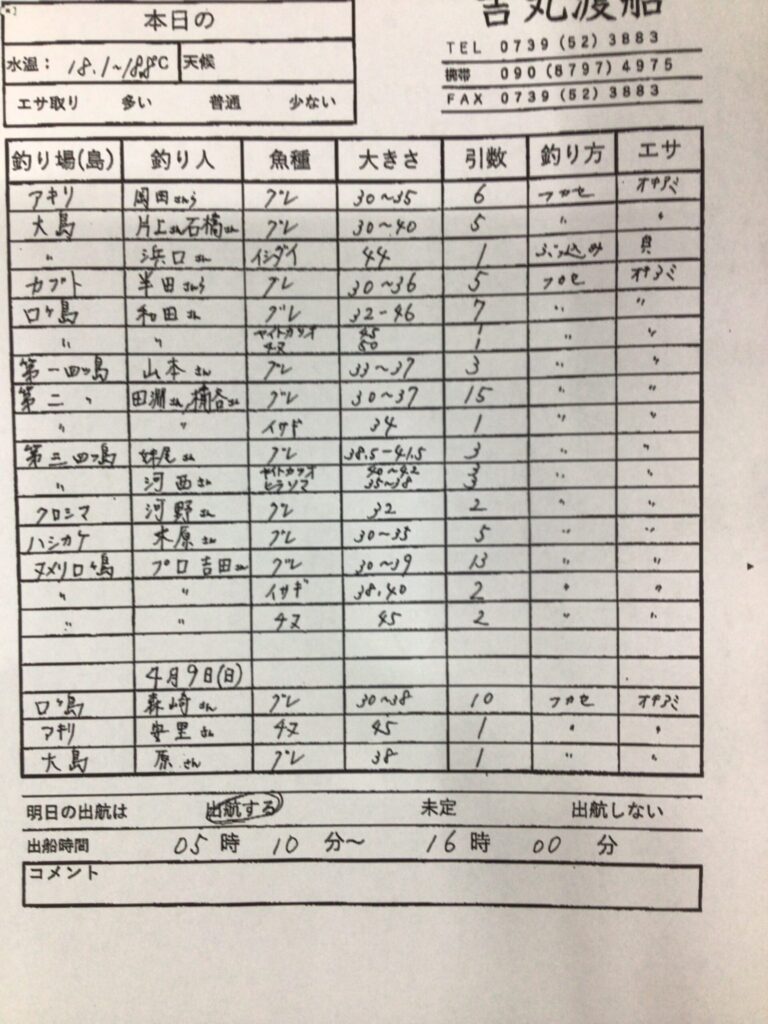 本日の
水温: 18.1~18.8℃ 天候
エサ取り 多い 普通 少ない
丸渡船
TEL 0739(52)3883
携帯 090(8797)4975
FAX 0739(52)3883
釣り場(島) 釣り人 魚種 大きさ 引数 釣り方 エサ
アキリ 岡田さんら グレ 30~35 6 フカセ オキアミ
大島 片上さん石橋さん グレ 30~40 5 〃 〃
〃 浜口さん イシダイ 44 1 ぶっ込み 貝
カブト 半田さんら グレ 30~36 5 フカセ オキアミ
ロツ島 和田さん グレ 32-46 7 〃 〃
〃 〃 ヤイトカツオ 45 1 〃 〃
チヌ 50 1
第一四ツ島 山本さん グレ 33~37 3 〃 〃
第二 〃 田淵さん 楠谷さん グレ 30~37 15 〃 〃
〃 〃 イサギ 34 1 〃 〃
第三四ツ島 妹尾さん グレ 38.5-41.5 3 〃 〃
〃 河西さん ヤイトカツオ 40~42 3 〃 〃
ヒラソマ 35~38 3
クロシマ 河野さん グレ 32 2 〃 〃
ハシカケ 木原さん グレ 30~35 5 〃 〃
ヌメリロツ島 プロ 吉田さん グレ 30~39 13 〃 〃
〃 〃 イサギ 38.40 2 〃 〃
〃 〃 チヌ 45 2 〃 〃
4月9日(日)
ロツ島 森崎さん グレ 30~38 10 フカセ オキアミ
アキリ 安里さん チヌ 45 1 〃 〃
大島 原さん グレ 38 1 〃 〃
明日の出航は 出航する 未定 出航しない
出船時間 05時 10分~ 16時 00分
コメント